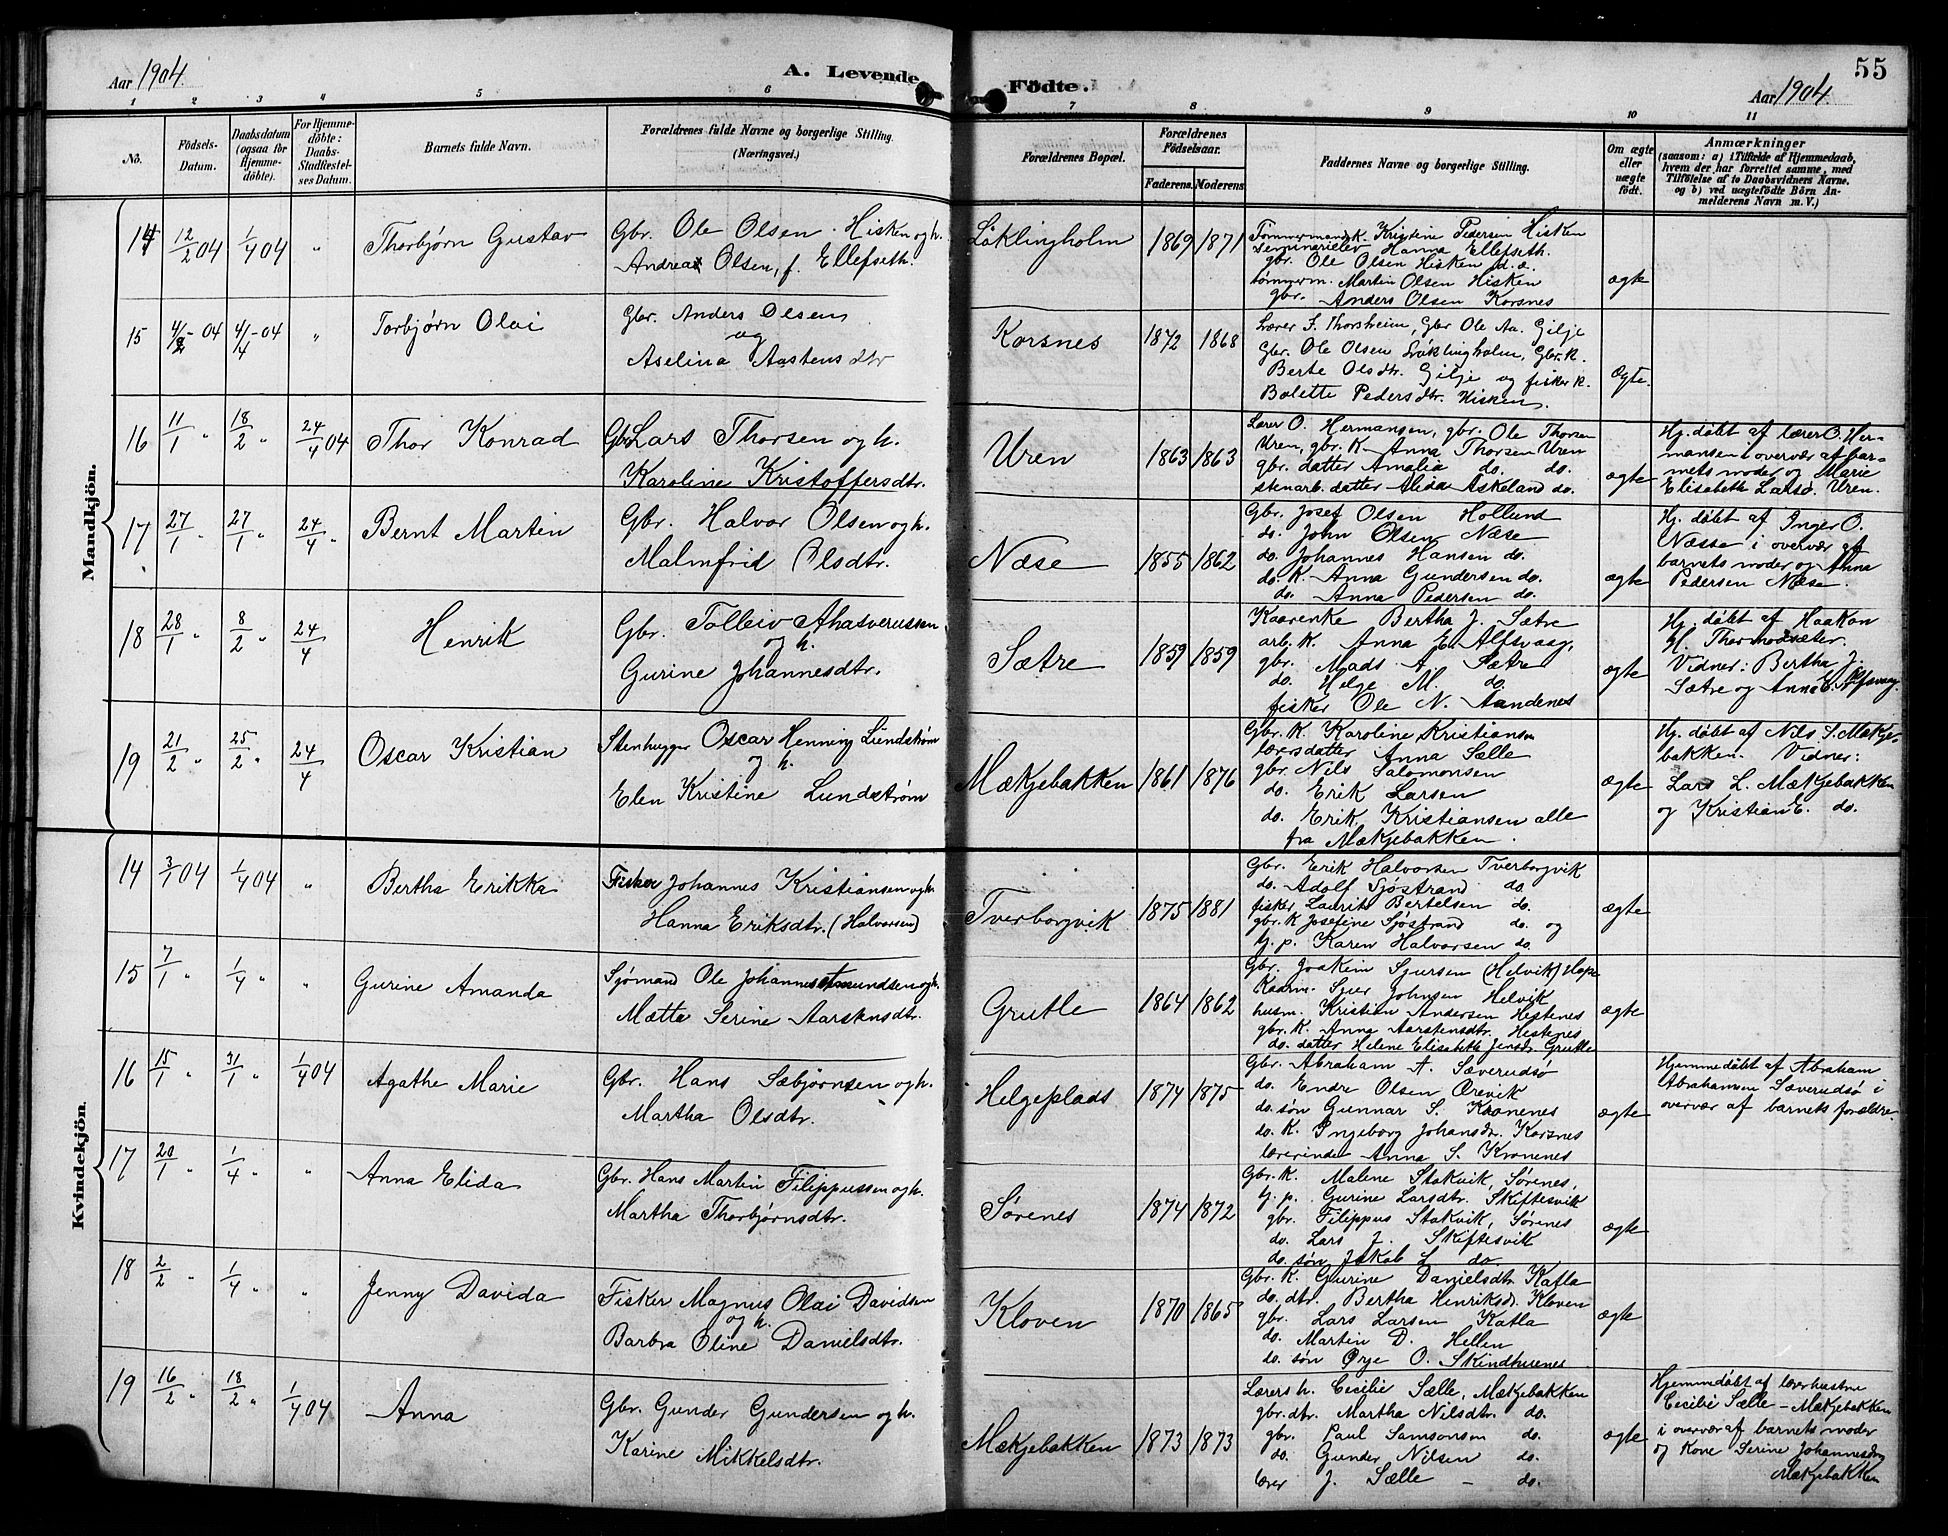 Aar 1904.
A. Levende
Födte.
Aar 1904.
55
1 2 3 4 5 6 7 8 9 10 11
No.
Födsels-
Datum.
Daabsdatum
(ogsaa for
Hjemme-
döbte).
For Hjemme-
döbte:
Daabs-
Stadfæstel-
ses Datum.
Barnets fulde Navn.
Forældrenes fulde Navne og borgerlige Stilling.
(Næringsvei.)
Forældrenes Bopæl.
Forældrenes
Födselsaar.
Faderens. Moderens.
Faddernes Navne og borgerlige Stilling.
Om ægte
eller
uægte
födt.
Anmærkninger
(saasom: a) i Tilfælde af Hjemmedaab,
hvem der har forrettet samme, med
Tilföielse af to Daabsvidners Navne,
og b) ved uægtefödte Börn An-
melderens Navn m. V.)
Mandkjön.
14 12/2 04 1/4 04 "
Thorbjørn Gustav
Gbr. Ole Olsen Hisken og h.
Andrea Olsen, f. Ellefseth.
Løklingholm
1869 1871
Tømmermandsk. Kristine Pedersen Hisken
seminarielev Hanna Ellefseth.
gbr. Ole Olsen Hisken d. æ.
tømmerm. Martin Olsen Hisken
gbr. Anders Olsen Korsnes
ægte
15 4/2 - 04 4/4 - 04 "
Torbjørn Olai
Gbr. Anders Olsen
og
Aselina Aastensdtr
Korsnes
1872 1868
Lærer S. Thorsheim, Gbr Ole Aa. Gilje
Gbr. Ole Olsen Løklingholm, Gbr. K.
Berte Olsdtr. Gilje og fisker k.
Bolette Pedersdtr. Hisken.
ægte.
16 11/1 " 18/2 " 24/4 04
Thor Konrad
Gbr. Lars Thorsen og h.
Karoline Kristoffersdtr.
Uren
1863 1863
Lærer O. Hermansen, gbr. Ole Thorsen
Uren, gbr. K. Anna Thorsen Uren
gbr. datter Amalia do. do.
stenarb. datter Alida Askeland do.
ægte
Hj. døbt af lærer O. Her-
mansen i overvær af bar-
nets moder og Marie
Elisabeth Larsd. Uren.
17 27/1 " 27/1 " 24/4 "
Bernt Martin
Gbr. Halvor Olsen og h.
Malmfrid Olsdtr.
Næse
1855 1862
Gbr. Josef Olsen Hollund
do. John Olsen Næse
do. Johannes Hansen do.
do. K. Anna Gundersen do.
do. Anna Pedersen do.
ægte
Hj. døbt af Inger O.
Næsse i overvær af
barnets moder og Anna
Pedersen Næse.
18 28/1 " 8/2 " 24/4
Henrik
Gbr. Tolleiv Ahasverussen
og h.
Gurine Johannesdtr.
Sætre
1859 1859
Kaarenke Bertha J. Sætre
arb. K. Anna E. Alfsvaag,
gbr. Mads A. Sætre
do. Helge M. do.
fisker Ole N. Aandenes
ægte
Hj. døbt af Haakon
H. Thormodsæter.
Vidner: Bertha J.
Sætre og Anna E. Alfsvaag.
19 21/2 " 25/2 " 24/4
Oscar Kristian
Stenhugger Oscar Henning Lundstrøm
og h.
Elen Kristine Lundstrøm
Mækjebakken
1861 1876
Gbr. K. Karoline Kristiansen
lærersdatter Anna Sælle
gbr. Nils Salomonsen
do. Erik Larsen
do. Erik Kristiansen alle
fra Mækjebakken.
ægte
Hj. døbt af Nils S. Mækje-
bakken. Vidner:
Lars L. Mækjebakken
og Kristian E. do.
Kvindekjön.
14 3/1 04 1/4 04 "
Bertha Erikka
Fisker Johannes Kristiansen og h.
Hanna Eriksdtr. (Halvorsen)
Tverborgvik
1875 1881
Gbr. Erik Halvorsen Tverborgvik
do. Adolf Sjøstrand do.
fisker Laurits Bertelsen do.
gbr. K. Josefine Sjøstrand do. og
tj. p. Karen Halvorsen do.
ægte
15 7/1 " 1/4 " "
Gurine Amanda
Sjømand Ole Johannes Amundsen og h.
Mætte Serine Aarstensdtr.
Grutle
1864 1862
Gbr. Joakim Sjursen (Helvik) Hope
Kaarm. Sjur Johnsen Helvik
husm. Kristian Andersen Hestenes
gbr. K. Anna Aarstensdtr. Hestenes
do. datter Helene Elisabeth Jensdr. Grutle
ægte
16 15/1 " 31/1 " 1/4 04
Agathe Marie
Gbr. Hans Sæbjørnsen og h.
Martha Olsdtr.
Helgeplads
1874 1875
Gbr. Abraham A. Sæverudsø
do. Endre Olsen Ørevik
do. søn Gunnar S. Kronenes
do. K. Ingeborg Johansdr. Korsnes
lærerinde Anna S. Kronenes
ægte
Hjemmedøbt af Abraham
Abrahamsen Sæverudsø i
overvær af barnets forældre.
17 20/1 " 1/4 " "
Anna Elida
Gbr. Hans Martin Filippussen og h.
Martha Thorbjørnsdtr.
Sørenes
1874 1872
Gbr. K. Malene Stokvik, Sørenes,
tj. p. Gurine Larsdtr. Skiftesvik
gbr. Filippus Stokvik, Sørenes
do. Lars J. Skiftesvik
do. søn Jakob L. do.
ægte
18 2/2 " 1/4 " "
Jenny Davida
Fisker Magnus Olai Davidsen
og h.
Barbra Oline Danielsdtr.
Kloven
1870 1865
Gbr. K. Gurine Danielsdtr Katla
do. dtr. Bertha Henriksdr. Kloven
gbr. Lars Larsen Katla
do. Martin D. Hellen
do. søn Ørje O. Skindhuenes
ægte
19 16/2 " 18/2 " 1/4 04
Anna
Gbr. Gunder Gundersen og h.
Karine Mikkelsdtr.
Mækjebakken
1873 1873
Lærers h. Cecilie Sælle, Mækjebakken
gbr. dtr. Martha Nilsdtr. do.
gbr. Paul Samsonsen do.
do. Gunder Nilsen do.
lærer J. Sælle - do.
ægte
Hjemmedøbt af lærerhustru
Cecilie Sælle - Mækjebakken
i overvær af barnets moder
og Kone Serine Johannesdtr
Mækjebakken